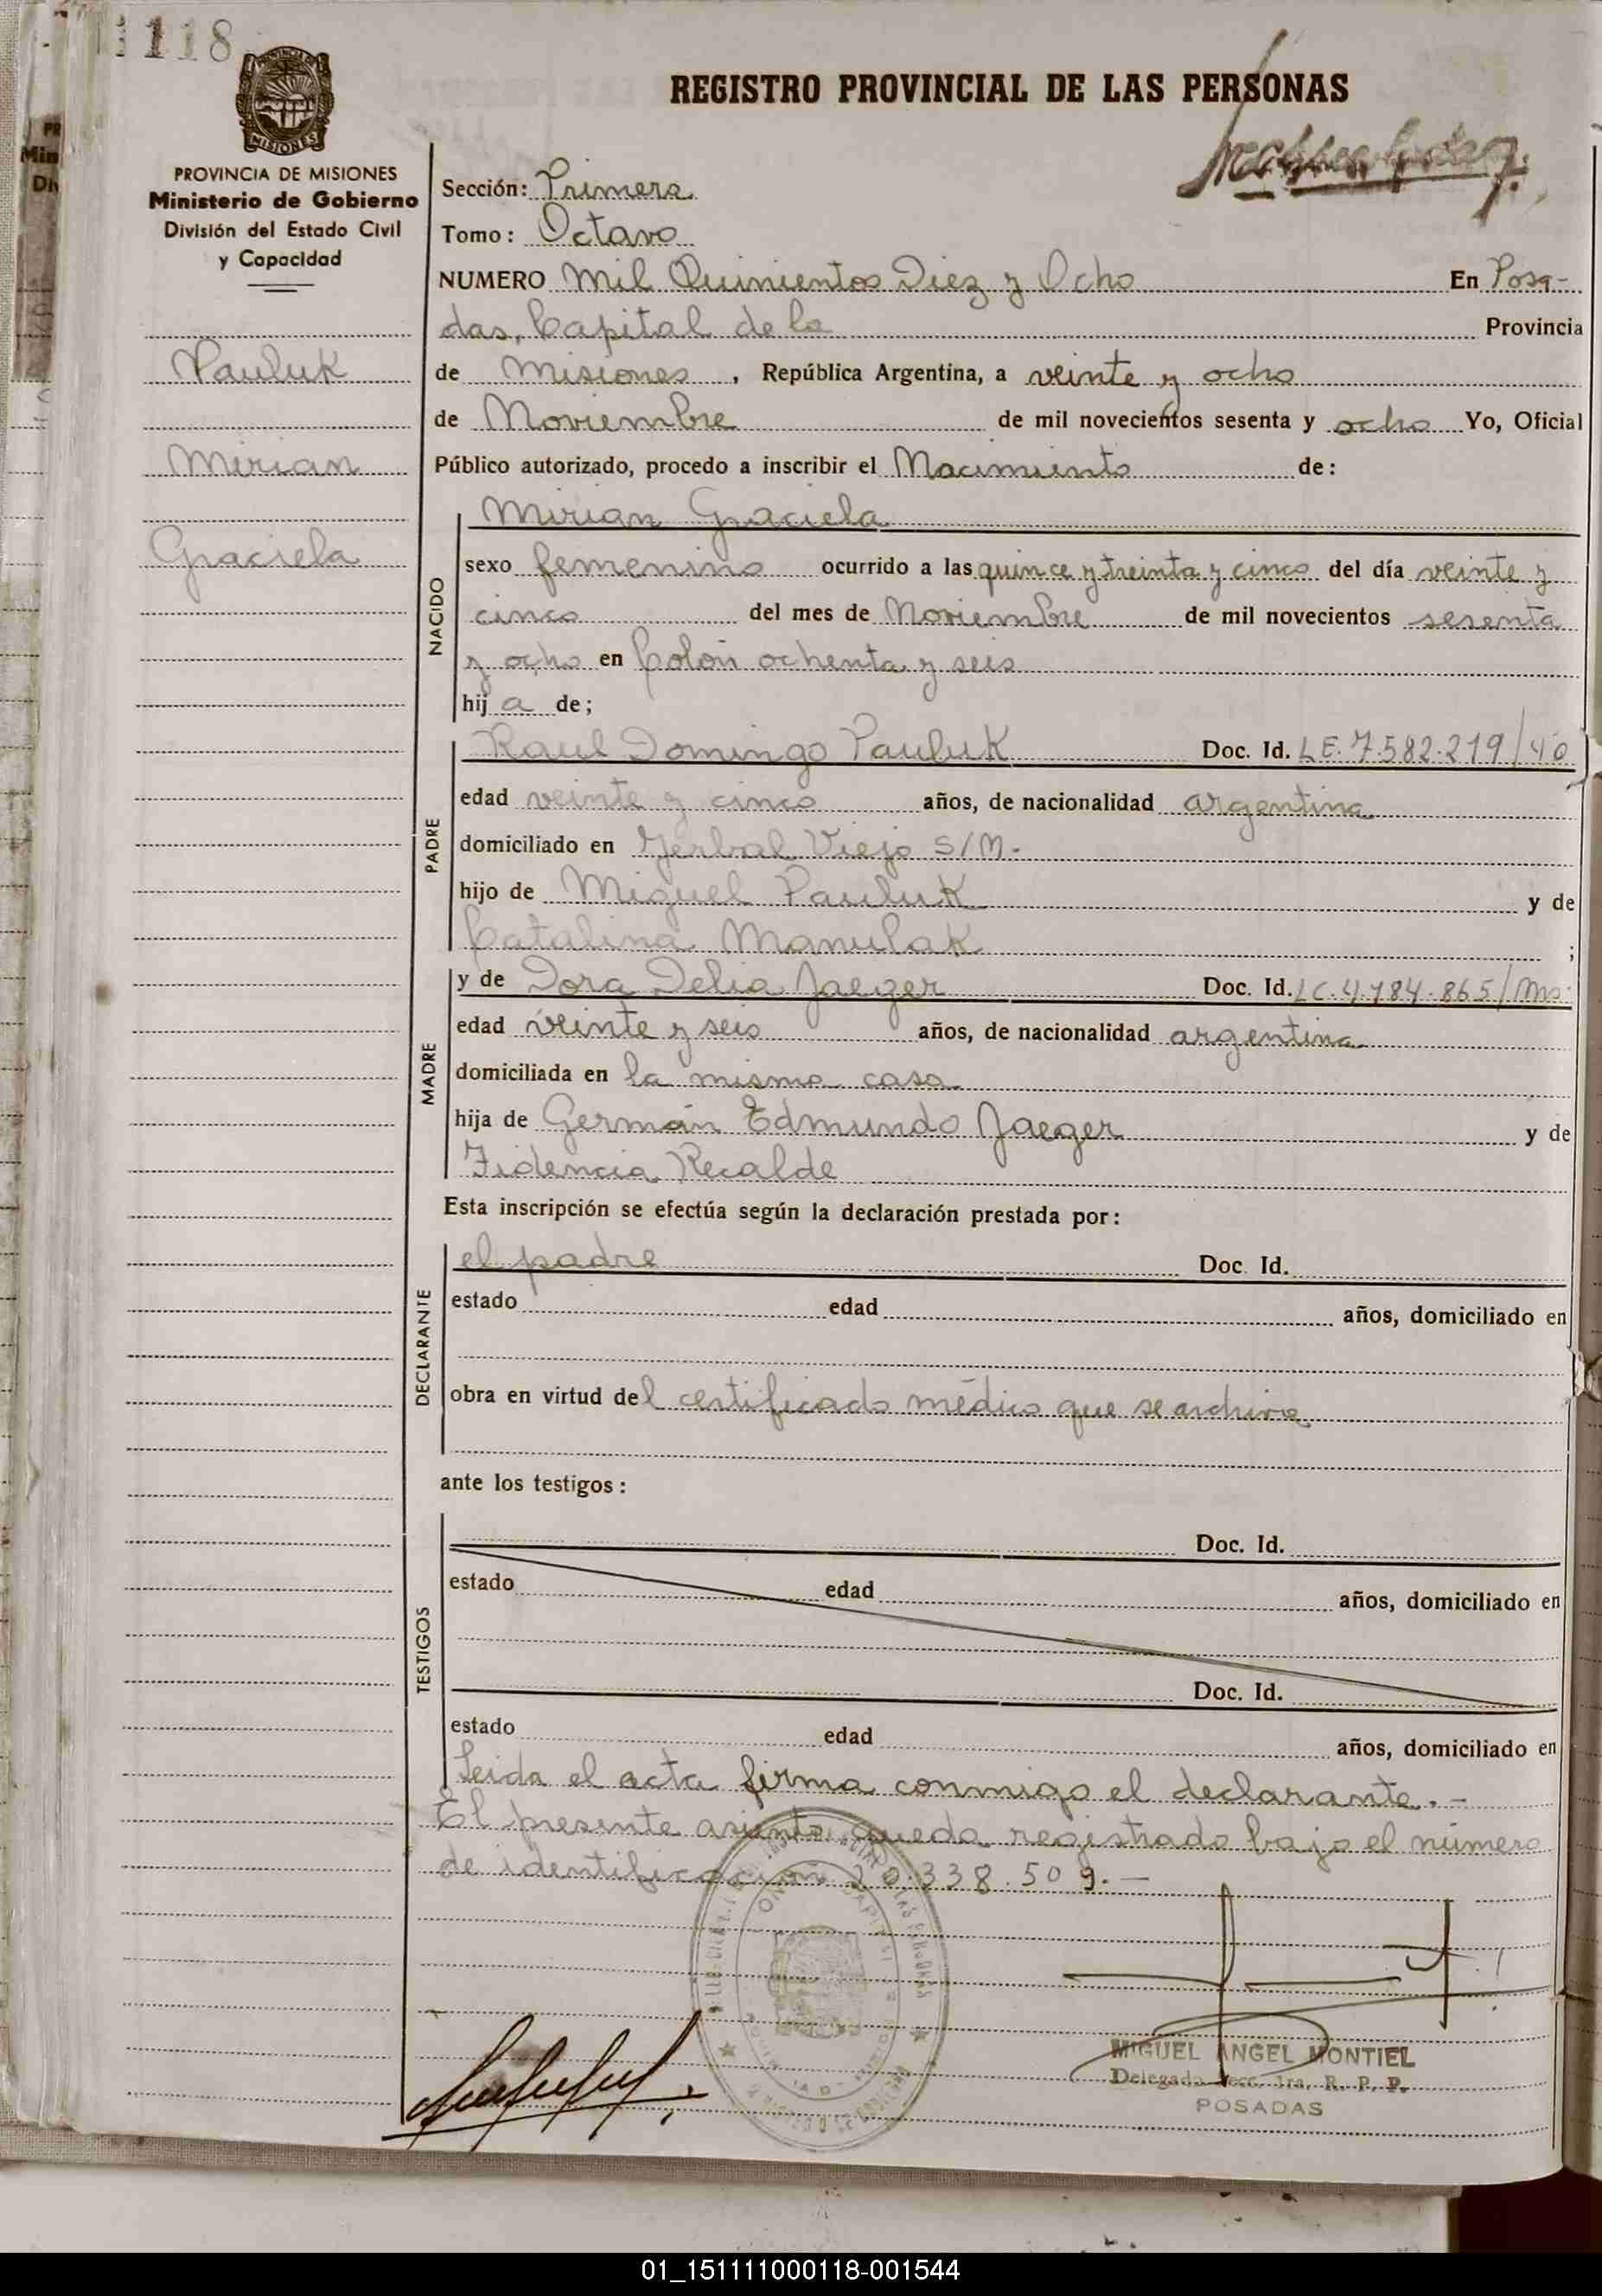 118
REGISTRO PROVINCIAL DE LAS PERSONAS
PROVINCIA DE MISIONES
MISIONES
PROVINCIA DE MISIONES
Ministerio de Gobierno
División del Estado Civil
y Capacidad
Pauluk
Mirian
Graciela
Sección: Primera
Tomo: Octavo
NUMERO Mil Quinientos Diez y Ocho En Posa-
das, Capital de la Provincia
de Misiones, República Argentina, a veinte y ocho
de Noviembre de mil novecientos sesenta y ocho Yo, Oficial
Público autorizado, procedo a inscribir el Nacimiento de:
NACIDO
Mirian Graciela
sexo femenino ocurrido a las quince y treinta y cinco del día veinte y
cinco del mes de Noviembre de mil novecientos sesenta
y ocho en Colón ochenta y seis
hij a de;
PADRE
Raul Domingo Pauluk Doc. Id. LE. 7.582.219/40
edad veinte y cinco años, de nacionalidad argentina
domiciliado en Yerbal Viejo S/N.
hijo de Miguel Pauluk y de
Catalina Manulak ;
MADRE
y de Dora Delia Jaeger Doc. Id. LC. 4.784.865/Ms.
edad veinte y seis años, de nacionalidad argentina
domiciliada en la misma casa
hija de Germán Edmundo Jaeger y de
Fidencia Recalde
Esta inscripción se efectúa según la declaración prestada por:
DECLARANTE
el padre Doc. Id.
estado edad años, domiciliado en
obra en virtud del certificado médico que se archiva
ante los testigos:
TESTIGOS
Doc. Id.
estado edad años, domiciliado en
Doc. Id.
estado edad años, domiciliado en
Leida el acta firma conmigo el declarante.-
El presente asiento queda registrado bajo el número
de identificación 20.338.509.-
MIGUEL ANGEL MONTIEL
Delegado Secc. 1ra. R. P. P.
POSADAS
01_151111000118-001544